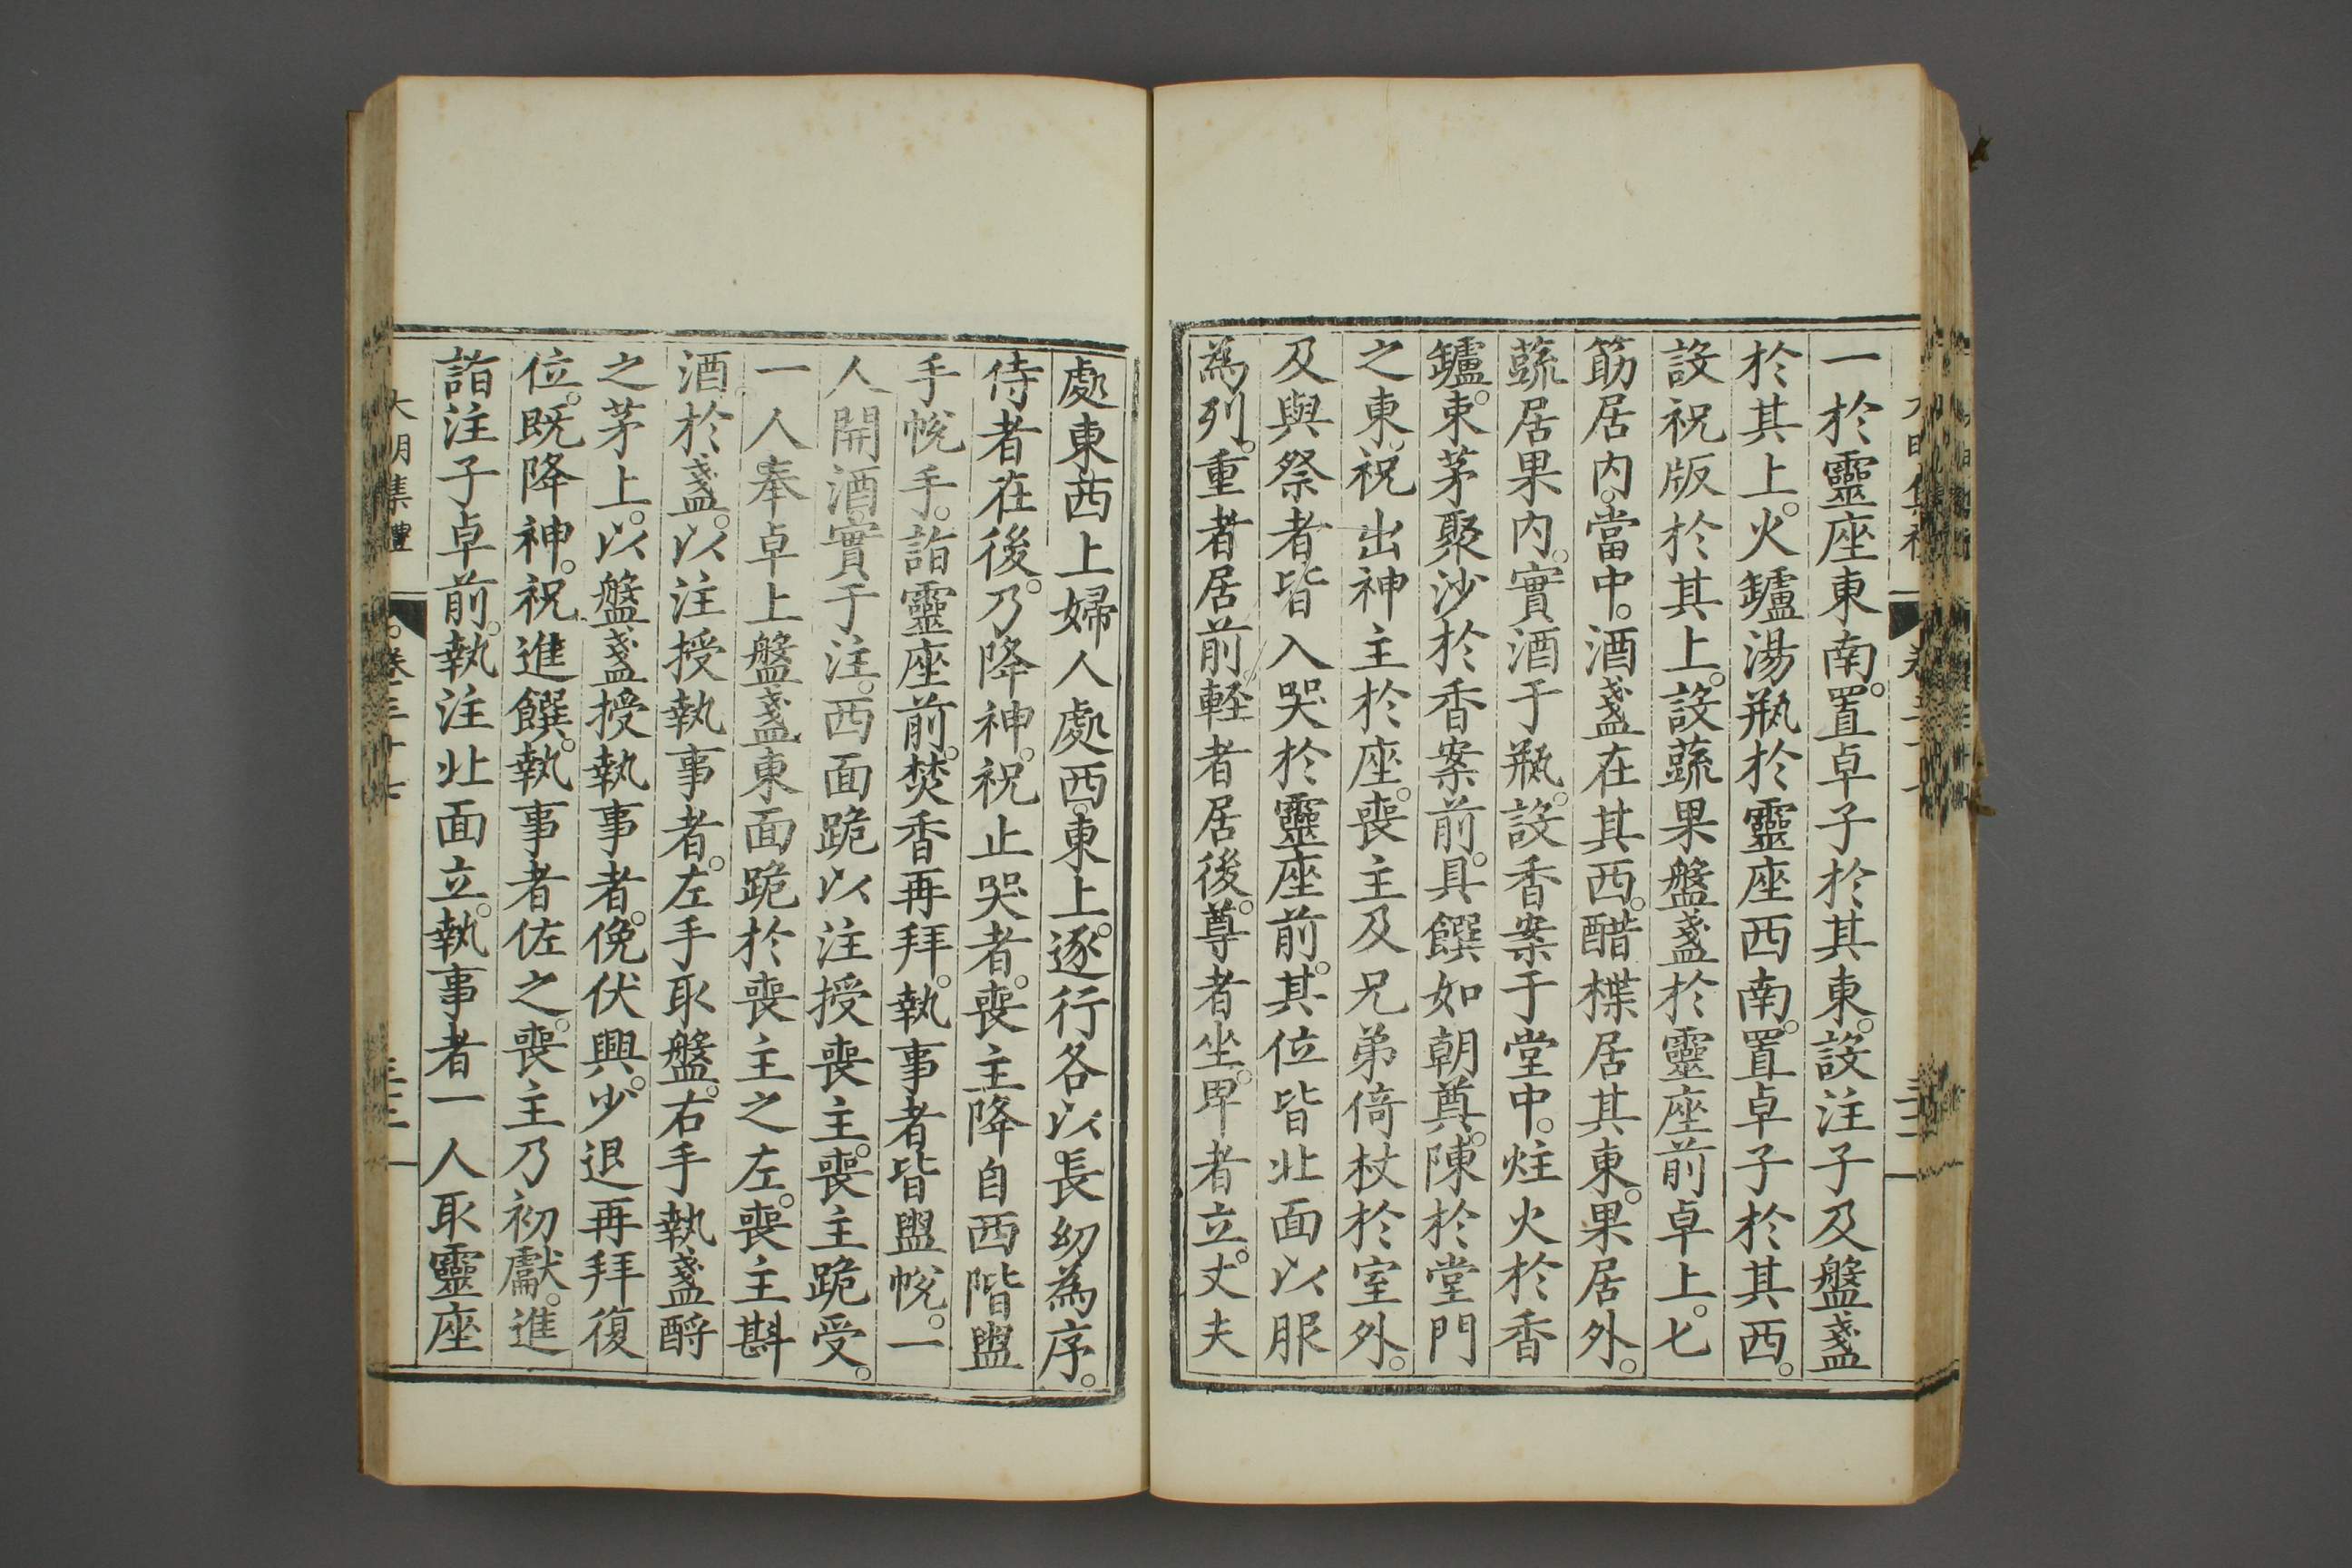 一於靈座東南。置卓子於其東。設注子及盤盞
於其上。火鑪湯瓶於靈座西南。置卓子於其西。
設祝版於其上。設蔬果盤盞於靈座前卓上。匕
筯居内。當中。酒盞在其西。醋楪居其東。果居外。
蔬居果内。實酒于瓶。設香案于堂中。炷火於香
鑪。束茅聚沙於香案前。具饌如朝奠。陳於堂門
之東。祝出神主於座。喪主及兄弟倚杖於室外。
及與祭者皆入哭於靈座前。其位皆北面以服
為列。重者居前輕者居後。尊者坐。卑者立。丈夫
處東西上婦人處西。東上。逐行各以長幼為序。
侍者在後。乃降神。祝止哭者。喪主降自西階盥
手帨手。詣靈座前。焚香再拜。執事者皆盥帨。一
人開酒。實于注。西面跪以注授喪主。喪主跪受。
一人奉卓上盤盞東面跪於喪主之左。喪主斟
酒於盞。以注授執事者。左手取盤。右手執盞酹
之茅上。以盤盞授執事者。俛伏興。少退再拜復
位。既降神。祝進饌。執事者佐之。喪主乃初獻。進
詣注子卓前。執注北面立。執事者一人取靈座
大明集禮 卷三十七